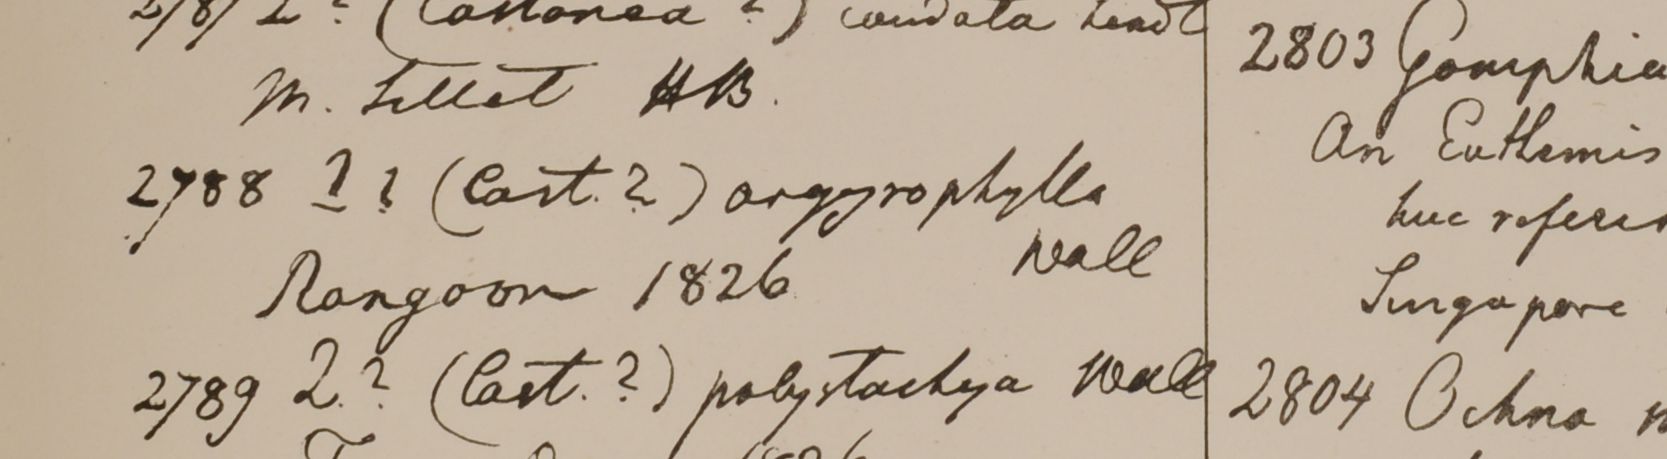 2787 Q ? (Castanea ?) caudata
M. Sillet HB.
2788 Q ? (Cast. ?) argyrophylla
Wall
Rangoon 1826
2789 Q. ? (Cast. ?) polystachya Wall
1826
2803 Gomphia
An Euthemis
huc refere
Singapore
2804 Ochna